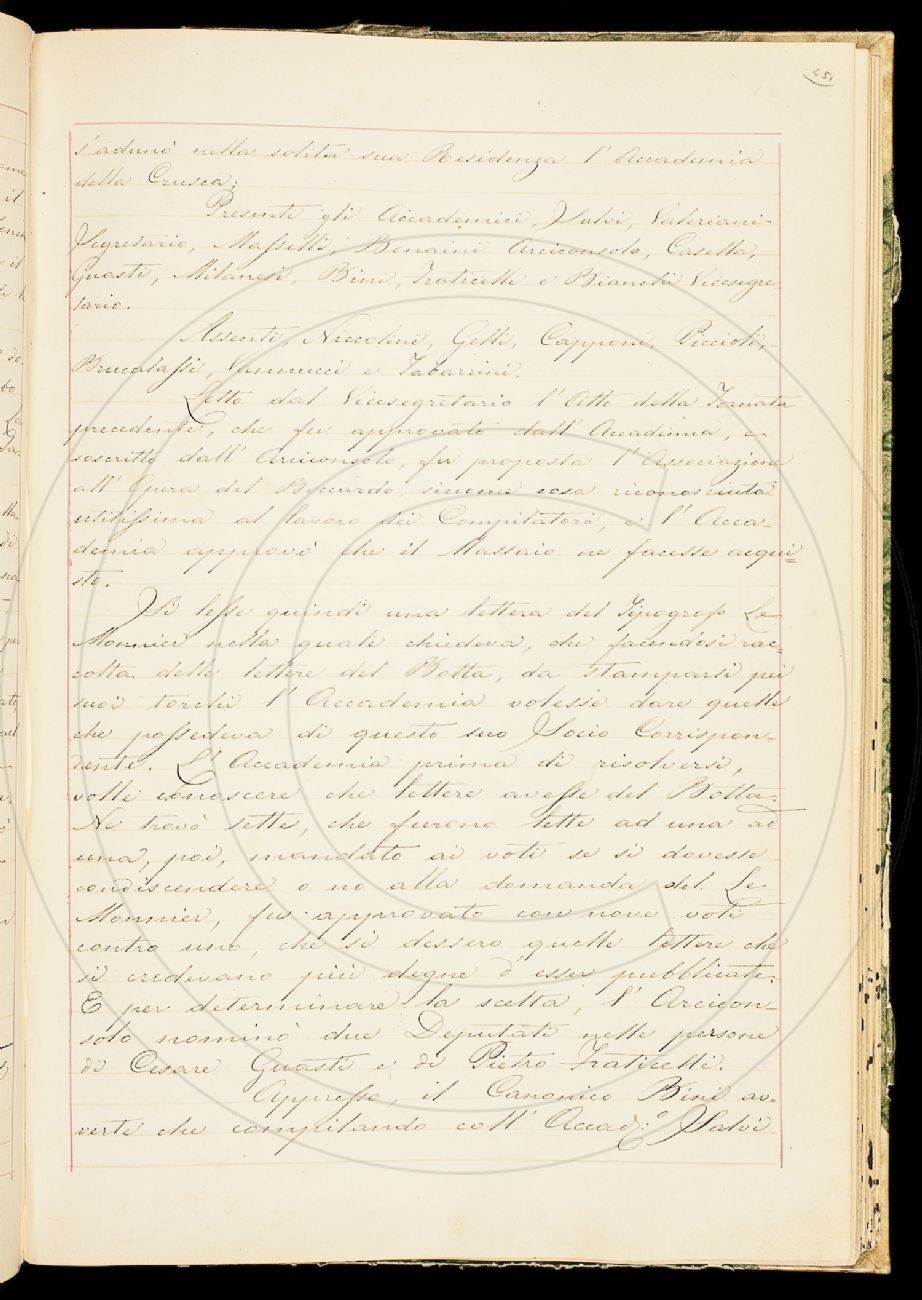 451
s'adunò nella solita sua Residenza l'Accademia
della Crusca;
Presenti gli Accademici, Salvi, Valeriani
Segretario, Masselli, Bonaini Arciconsolo, Casella,
Guasti, Milanesi, Bini, Fraticelli e Bianchi Vicesegre-
tario.
Assenti, Niccolini, Gelli, Capponi, Piccioli,
Brucalassi, Vannucci e Tabarrini.
Letto dal Vicesegretario l'Atto della Tornata
precedente, che fu approvato dall'Accademia, e
soscritto dall'Arciconsolo, fu proposta l'Associazione
all'Opera del Boccardo, siccome cosa riconosciuta
utilissima al lavoro dei Compilatori, e l'Acca-
demia approvò che il Massaio ne facesse acqui=
sto.
Si lesse quindi una lettera del Tipografo Le
Monnier nella quale chiedeva, che facendosi rac=
colta delle lettere del Botta, da stamparsi pei
suoi torchi l'Accademia volesse dare quelle
che possedeva di questo suo Socio Corrispon-
dente. L'Accademia prima di risolversi,
volle conoscere che lettere avesse del Botta.
Ne trovò sette, che furono lette ad una ad
una, poi, mandato ai voti se si dovesse
condiscendere o no alla domanda del Le
Monnier, fu approvato con nove voti
contro uno, che si dessero quelle lettere che
si credevano più degne d'esser pubblicate.
E per determinare la scelta, l'Arcicon-
solo nominò due Deputati nelle persone
di Cesare Guasti e di Pietro Fraticelli.
Appresso, il Canonico Bini av-
verte che compilando coll'Accad:º Salvi